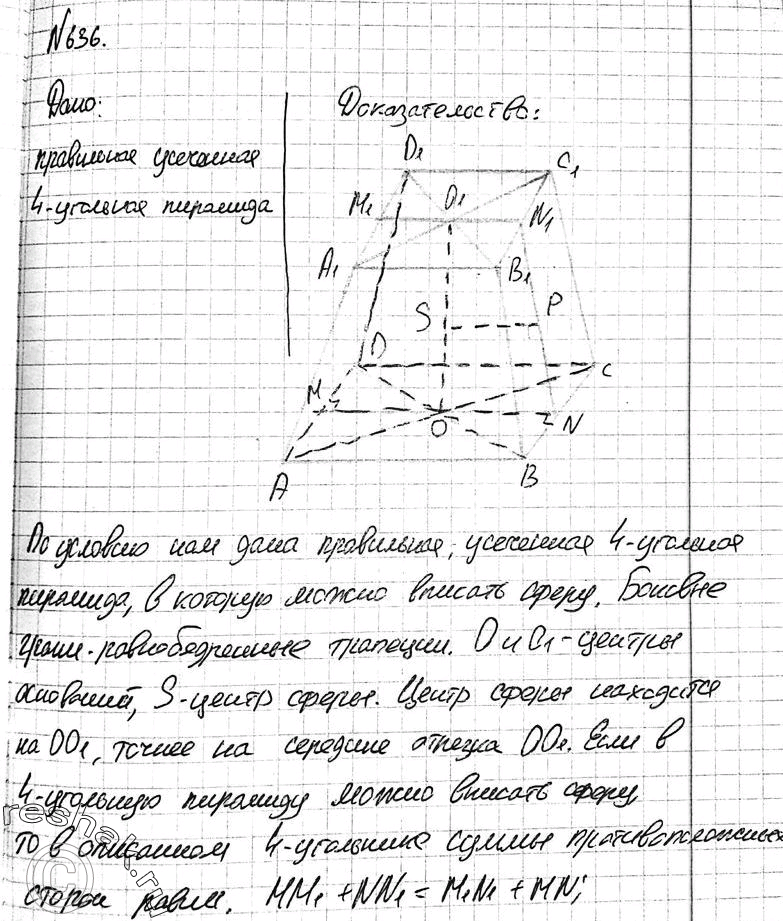 N636.
Дано:
Доказательство:
правильная усеченная
4-угольная пирамида
D1
C1
M1
O1
N1
A1
B1
S
P
D
C
M
O
N
A
B
По условию нам дана правильная, усеченная 4-угольная
пирамида, в которую можно вписать сферу. Боковые
грани-равнобедренные трапеции. O и O1-центры
оснований, S-центр сферы. Центр сферы находится
на OO1, точнее на середине отрезка OO1. Если в
4-угольную пирамиду можно вписать сферу
то в описанном 4-угольнике суммы противоположных
сторон равны. MM1 + NN1 = M1N1 + MN;
reshak.ru
©